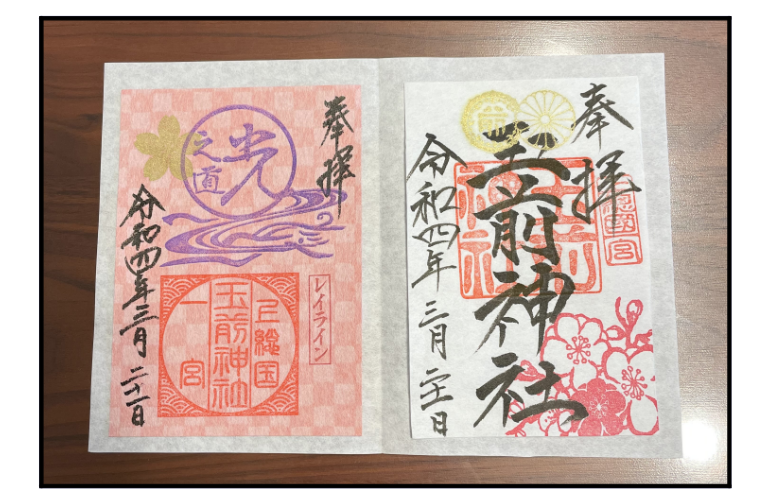 奉拝
玉前神社
玉前神社
令和四年三月二十一日
奉拝
光之道
レイライン
上総国
玉前神社
一宮
令和四年三月二十一日